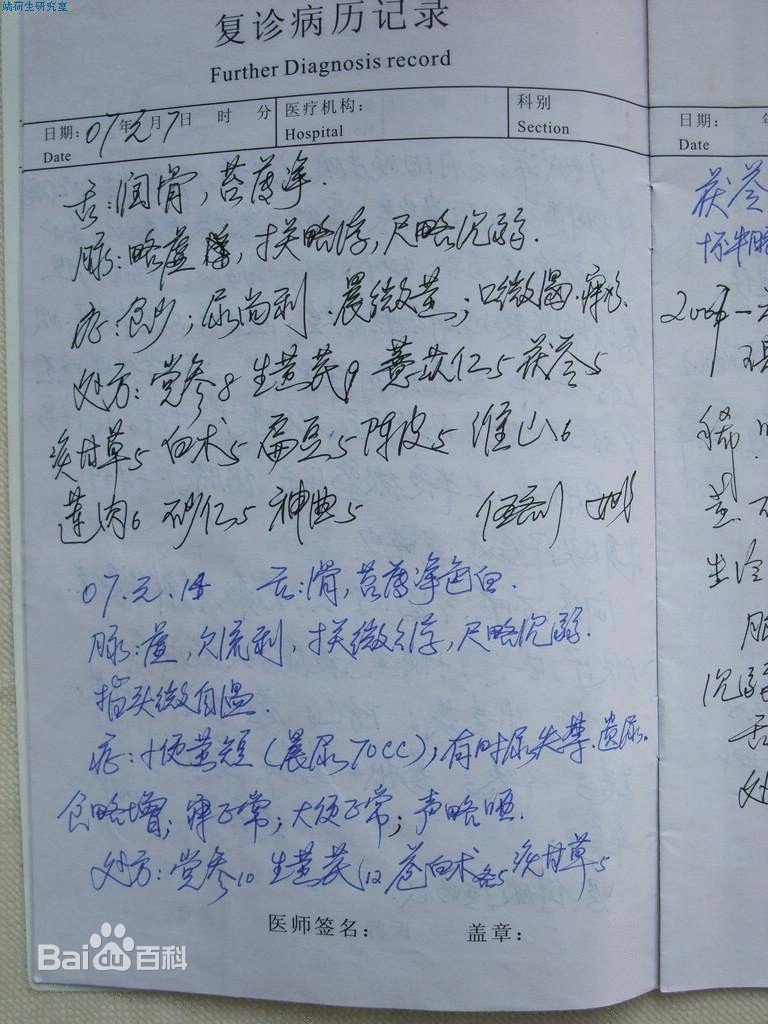 复诊病历记录
Further Diagnosis record
日期: 07年元月7日 时 分 医疗机构: 科别
Date Hospital Section
舌:润滑,苔薄净.
脉:略虚,寸关略浮,尺略沉弱.
症:食少;尿尚利.晨微黄;口微
处方:党参8 生黄芪9 薏苡仁5 茯苓5
炙甘草5 白术5 扁豆5 陈皮5 淮山6
莲肉6 砂仁5 神曲5
07.元.14 舌:滑,苔薄净色白.
脉:虚,欠流利,寸关微浮,尺略沉弱.
指头微自温.
症:小便黄短(晨尿70CC),有时尿失禁.遗尿.
食略增;寐正常;大便正常;声略哑.
处方:党参10 生黄芪12 苍白术各5 炙甘草5
医师签名: 盖章:
日期:
Date
茯苓
沉弱
舌
处
Bai百科